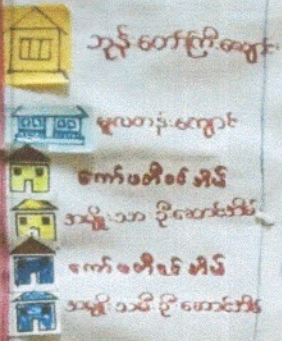 ဘုန်းတော်ကြီးကျောင်း
မူလတန်းကျောင်း
ကော်မတီဝင်အိမ်
အမျိုးသား ဦးဆောင်အိမ်
ကော်မတီဝင်အိမ်
အမျိုးသမီး ဦးဆောင်အိမ်